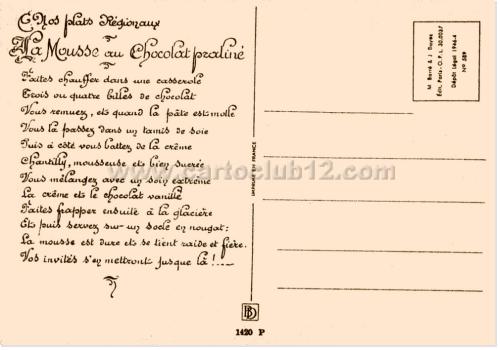 Nos plats Régionaux
La Mousse au Chocolat praliné
Faites chauffer dans une casserole
Trois ou quatre billes de chocolat
Vous remuez, et quand la pâte est molle
Vous la passez dans un tamis de soie
Puis à côté vous battez de la crème
Chantilly, mousseuse et bien sucrée
Vous mélangez avec un soin extrême
La crème et le chocolat vanillé
Faites frapper ensuite à la glacière
Et puis servez sur un socle en nougat:
La mousse est dure et se tient raide et fière.
Vos invités s'en mettront jusque là!...
www.cartoclub12.com
IMPRIMÉ EN FRANCE
M. Barré & J. Dayez
Édit. Paris - O.P.L. 30.0037
Dépôt légal 1946-4
N° 589
BD
1420 P